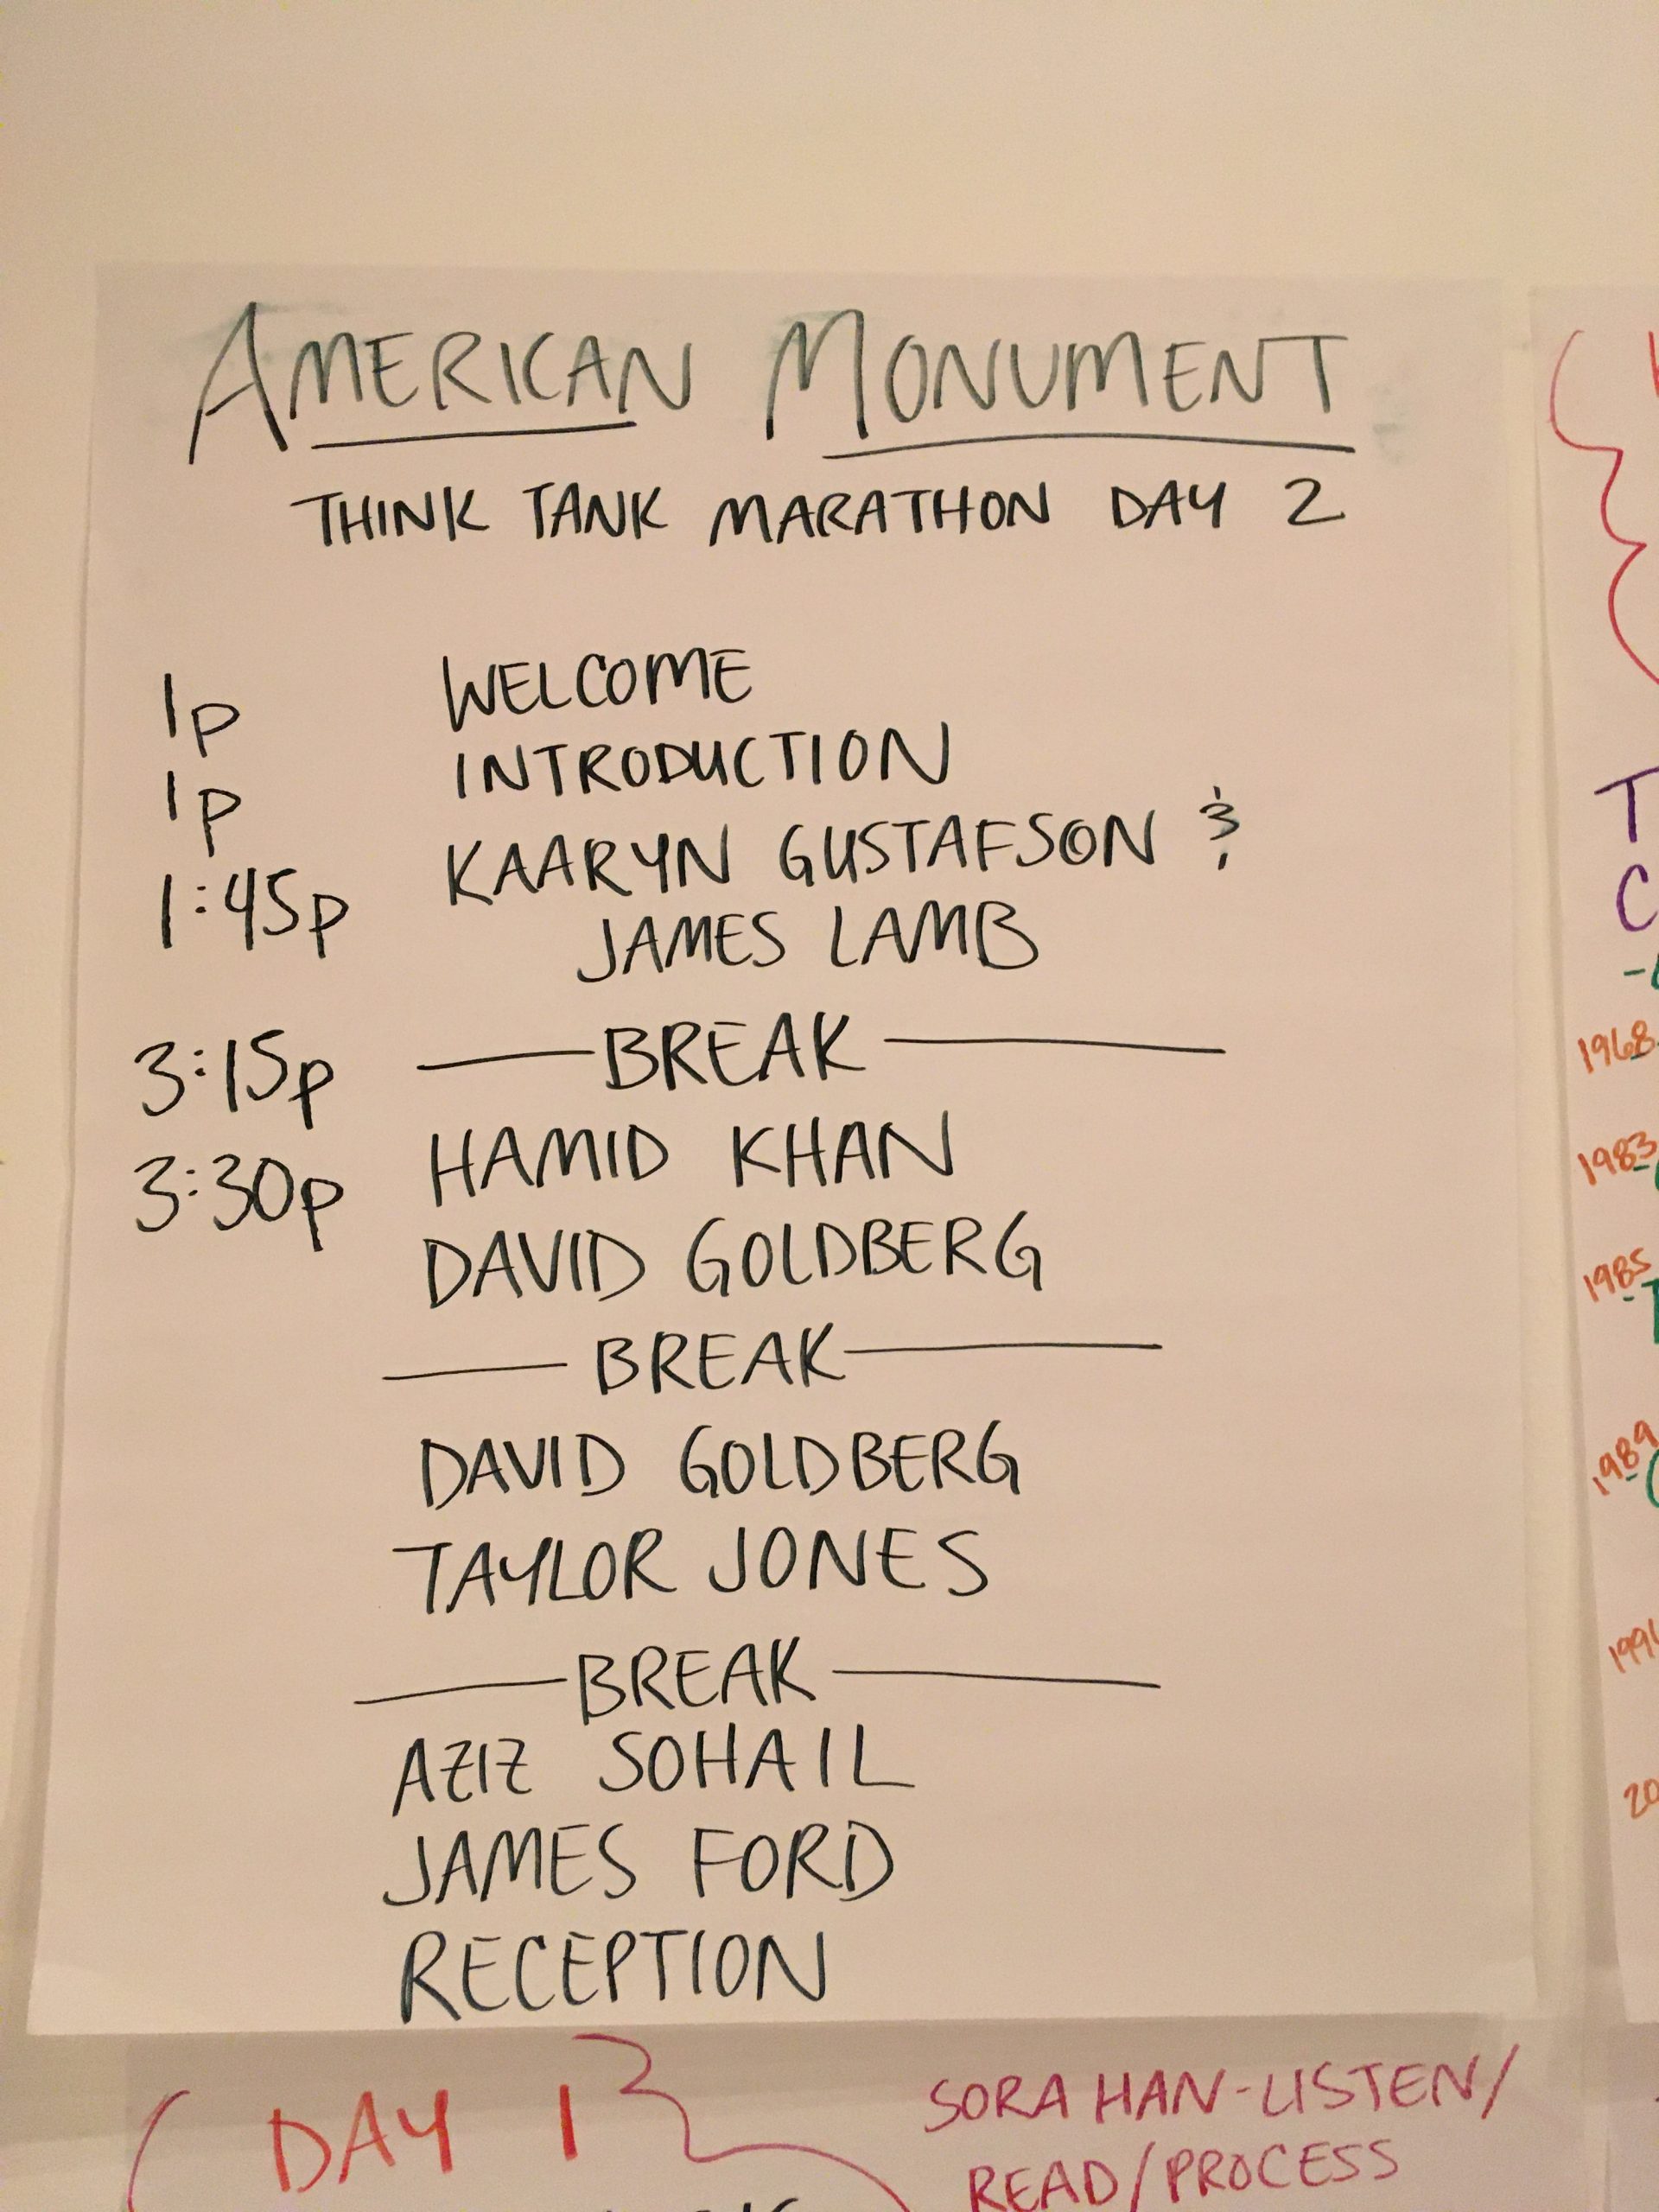 AMERICAN MONUMENT
THINK TANK MARATHON DAY 2
1p WELCOME
1p INTRODUCTION
1:45p KAARYN GUSTAFSON &
JAMES LAMB
3:15p —BREAK—
3:30p HAMID KHAN
DAVID GOLDBERG
— BREAK—
DAVID GOLDBERG
TAYLOR JONES
—BREAK—
AZIZ SOHAIL
JAMES FORD
RECEPTION
DAY 1
SORA HAN-LISTEN/
READ/PROCESS
T
C
1968
1983
1985
1989